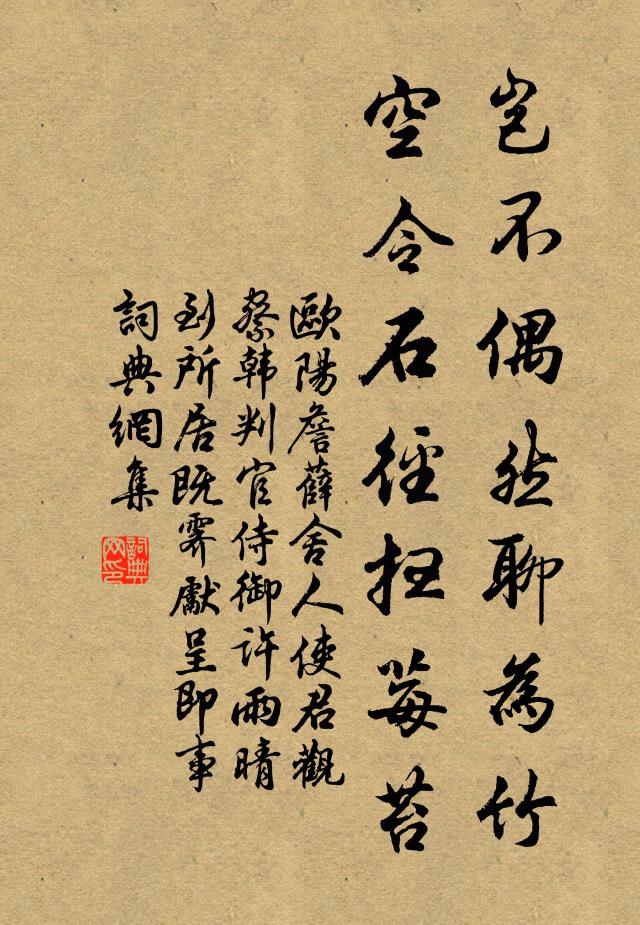 豈不偶然聊為竹
空令石徑掃莓苔
歐陽詹薛舍人使君觀
察韓判官侍御許雨晴
到所居既霽獻呈即事
詞典網集
詞典网印